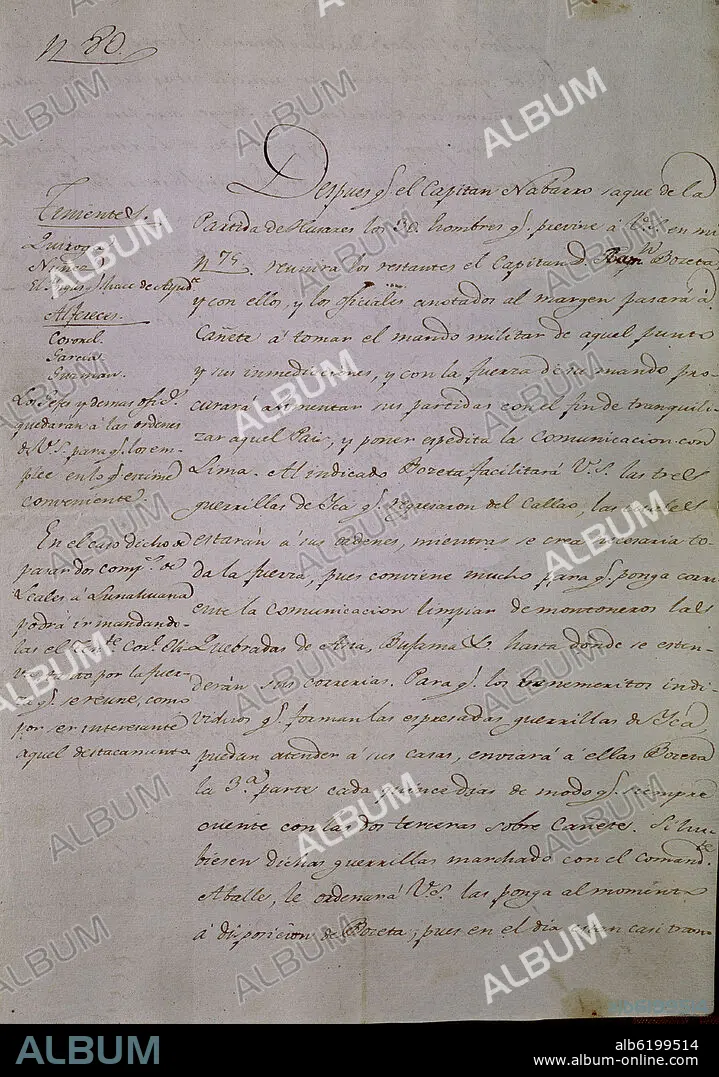 n 80.
Tenientes.
Quiroga
Nuñez
Alfereces.
Coronel.
Garcia.
Guzman.
Los Gefes y demas ofic.s
quedarán á las ordenes
de V.S. para q.e los em-
plee en lo q.e estime
conveniente.
En el caso dicho de
pasar dos comp.s de
Leales a Lunahuana
podrá ir mandando-
las el Ten.te Cor.l
por la fuer-
za q.e se reune, como
por ser interesante
aquel destacamento.
Despues q.e el Capitan Nabarro saque de la
Partida de Husares los 30. hombres q.e previne á V.S. en mi
n 75, reunirá los restantes el Capitan D. Bozeta,
y con ellos, y los oficiales anotados al margen pasará á
Cañete á tomar el mando militar de aquel punto
y sus inmediciones, y con la fuerza de su mando pro-
curará aumentar sus partidas con el fin de tranquili-
zar aquel Pais, y poner expedita la comunicacion con
Lima. Al indicado Bozeta facilitará V.S. las tres
guerrillas de Yca q.e regresaron del Callao, las cuales
estarán a sus ordenes, mientras se crea necesaria to-
da la fuerza, pues conviene mucho para q.e ponga corri-
ente la comunicacion limpiar de montoneros las
Quebradas de Asia, Bujama &. hasta donde se esten-
derán sus correrias. Para q.e los indi-
viduos q.e forman las espresadas guerrillas de Yca,
puedan atender á sus casas, enviará á ellas Bozeta
la 3.a parte cada quince dias de modo q.e siempre
cuente con las dos terceras sobre Cañete. Si hu-
biesen dichas guerrillas marchado con el comand.te
Aballe, le ordenará V.S. las ponga al momento
á disposicion de Bozeta; pues en el dia estan casi tran-
ALBUM
alb6199514
www.album-online.com